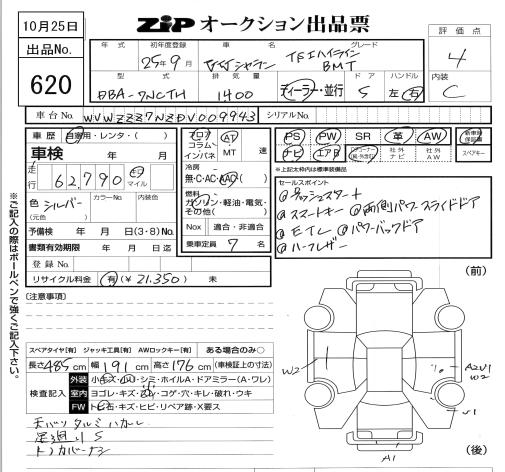 10月25日
出品No.
620
ZIP オークション出品票
評価点
4
内装
C
年式 初年度登録 車名 グレード
25年9月 VWシャラン TSIハイライン
BMT
型式 排気量 ドア ハンドル
DBA-7NCTH 1400 ディーラー・並行 5 左・右
車台No. WVWZZZ7NZDV009943 シリアルNo.
車歴 自家用・レンタ・( )
車検 年 月
走行 62,790 km マイル
色 シルバー カラーNo. 内装色
(元色)
予備検 年 月 日(3・8)No.
書類有効期限 年 月 日迄
登録No.
リサイクル料金 有(¥21,350) 未
フロア AT
コラム
インパネ MT 速
冷房
無・C・AC・AAC
燃料
ガソリン・軽油・電気・
その他( )
Nox 適合・非適合
乗車定員 7 名
PS PW SR 革 AW 新車時保証書
ナビ エアB 社外ナビ 社外AW スペアキー
※上記太枠内は標準装備品
セールスポイント
@プッシュスタート
@スマートキー @両側パワースライドドア
@ETC @パワーバックドア
@ハーフレザー
※ご記入の際はボールペンで強くご記入下さい。
[注意事項]
スペアタイヤ[有] ジャッキ工具[有] AWロックキー[有] ある場合のみ○
長さ485cm 幅191cm 高さ176cm (車検証上の寸法)
検査記入
外装 小キズ・小U・シミ・ホイルA・ドアミラー(A・ワレ)
室内 ヨゴレ・キズ・スレ・コゲ・穴・キレ・破れ・ウキ
FW トビ石・キズ・ヒビ・リペア跡・X要ス
天バリタルミハガレ
足廻りS
トノカバーナシ
(前)
W2
A2U1
W2
U1
A1
(後)